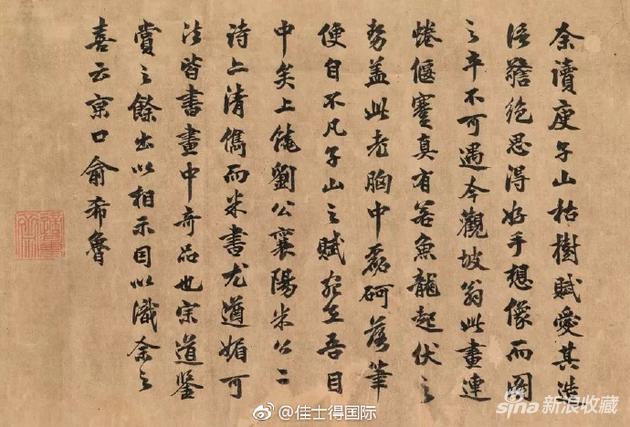 余讀庾子山枯樹賦愛其造
語警絕思得好手想像而圖
之卒不可遇今觀坡翁此畫連
蜷偃蹇真有若魚龍起伏之
勢蓋此老胸中磊砢落筆
便自不凡子山之賦宛在吾目
中矣上饒劉公襄陽米公二
詩亦清儁而米書尤遒媚可
法皆書畫中奇品也宗道鑒
賞之餘出以相示因以識余之
喜云京口俞希魯
@佳士得国际
sina新浪收藏